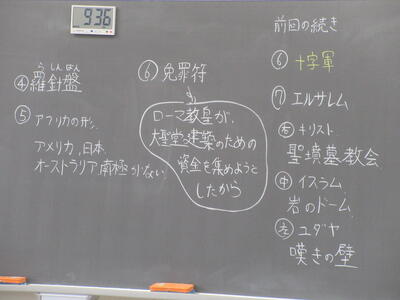 9:36
らしんばん
④羅針盤
⑤アフリカの形、
アメリカ、日本、
オーストラリア、南極がない
⑥免罪符
ローマ教皇が、
大聖堂の建築のための
資金を集めようと
したから
前回の続き
⑥十字軍
⑦エルサレム
㊨キリスト
聖墳墓教会
㊥イスラム
岩のドーム
㊧ユダヤ
嘆きの壁